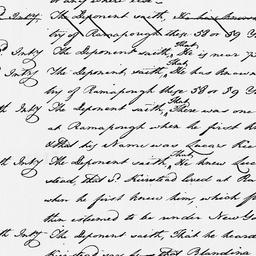 or any where else
Inty The Deponent saith,
ty of Ramapough these 38 or 39 Y
Inty The Deponent saith, That He is near 7
Inty The Deponent, saith, That He has known
ty of Ramapough these 38 or 39 Y
th Inty The Deponent saith, That There was one
at Ramapough when he first k
& that his Name was Lucas Kier
th Inty The Deponent saith, That He knew Luca
stead, that S. Kierstead lived at Ra
when he first knew them, which
then esteemed to be under New Yo
th Inty The Deponent saith, That he heard
Kierstead was by That Blandina